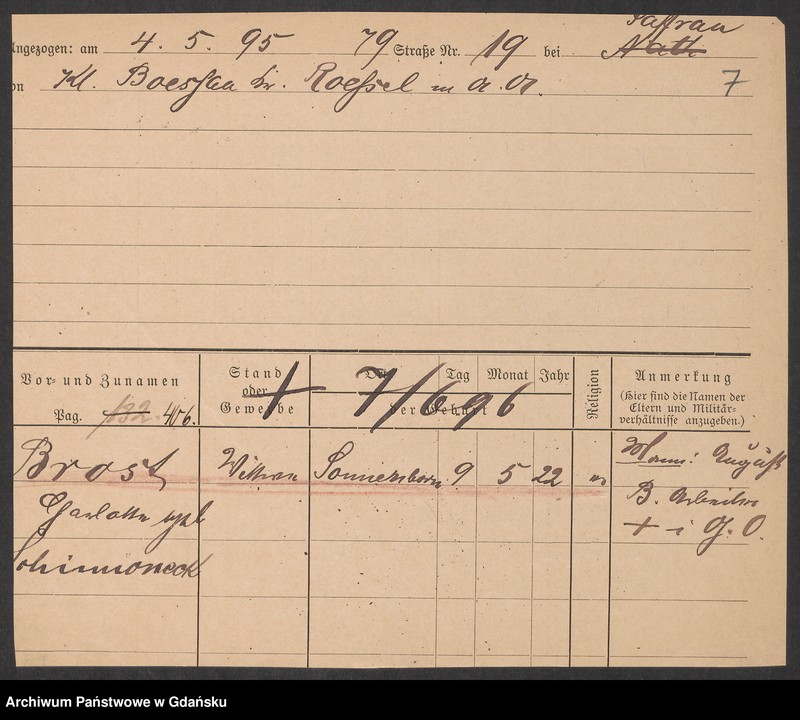 Saffran
Angezogen: am 4. 5. 95 79 Straße Nr. 19 bei Nath
von Kl. Boessau Kr. Roessel m A. A. 7
Vor- und Zunamen
Pag. 132 406.
Stand
oder
Gewerbe
Ort Tag Monat Jahr
der Geburt
+ 7/6 96
Religion
Anmerkung
(Hier sind die Namen der
Eltern und Militär-
verhältnisse anzugeben.)
Brost Wittwe Sonnersborn 9 5 22
Charlotte geb
Schimmioneck
Mann: August
B. Arbeiter
+ i G. O.
Archiwum Państwowe w Gdańsku